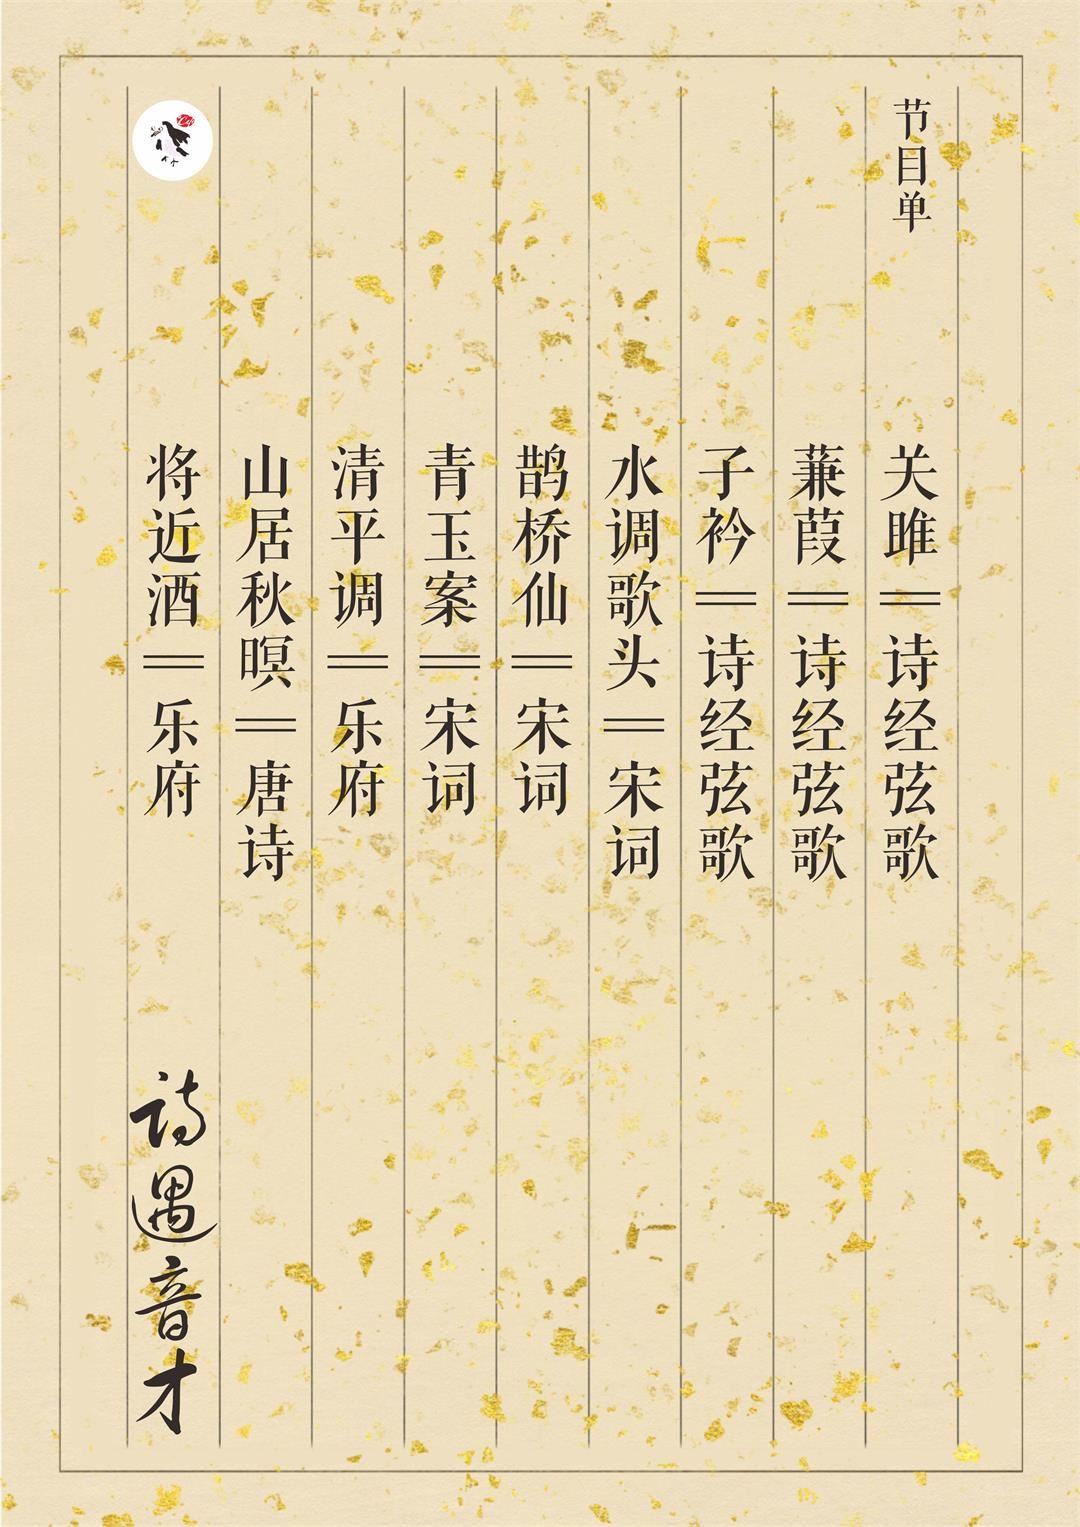 节目单
关雎＝诗经弦歌
蒹葭＝诗经弦歌
子衿＝诗经弦歌
水调歌头＝宋词
鹊桥仙＝宋词
青玉案＝宋词
清平调＝乐府
山居秋暝＝唐诗
将近酒＝乐府
诗遇音才